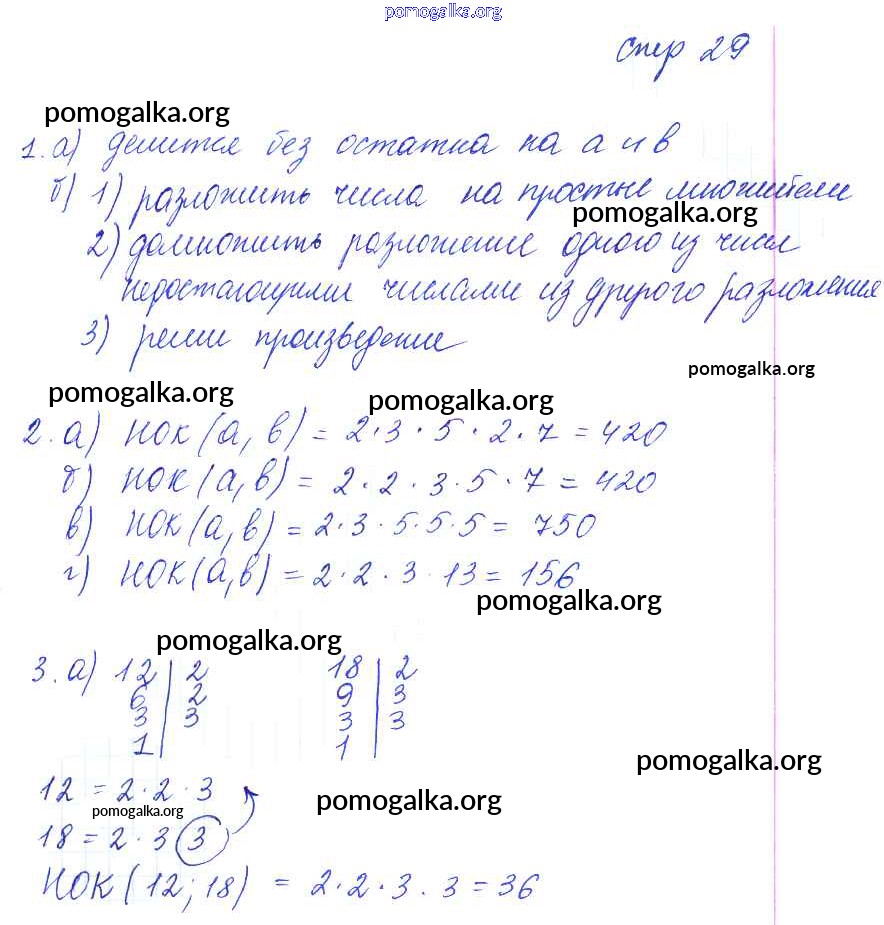 pomogalka.org
стр 29
pomogalka.org
1. а) делится без остатка на а и в
б) 1) разложить числа на простые множители
pomogalka.org
2) домножить разложение одного из чисел
недостающими числами из другого разложения
3) реши произведение
pomogalka.org
pomogalka.org pomogalka.org
2. а) НОК (а, в) = 2·3·5·2·7 = 420
б) НОК (а, в) = 2·2·3·5·7 = 420
в) НОК (а, в) = 2·3·5·5·5 = 750
г) НОК (а, в) = 2·2·3·13 = 156
pomogalka.org
pomogalka.org
3. а) 12 | 2 18 | 2
6 | 2 9 | 3
3 | 3 3 | 3
1 | 1 |
pomogalka.org
12 = 2·2·3
pomogalka.org pomogalka.org
18 = 2·3 3
НОК (12; 18) = 2·2·3·3 = 36